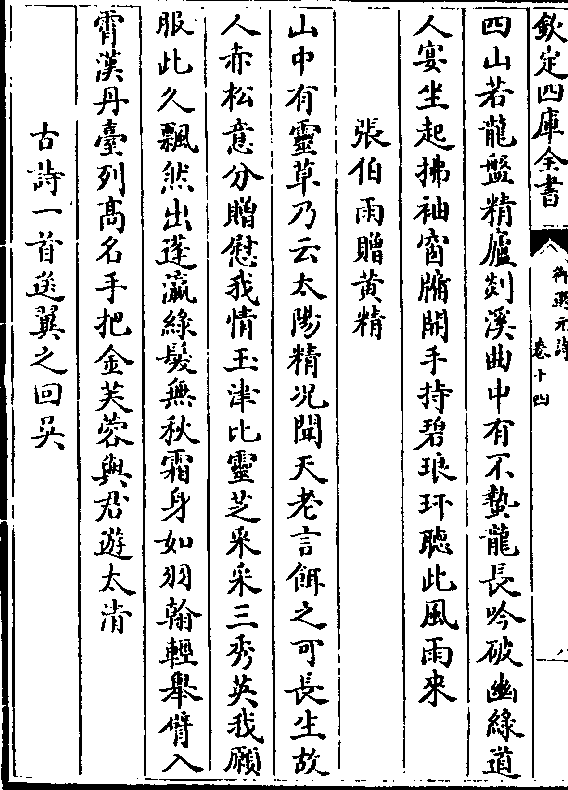 欽定四庫全書
御選元詩
卷十四
八
四山若龍盤精廬剡溪曲中有不蟄龍長吟破幽綠道
人宴坐起拂袖窗牖開手持碧琅玕聽此風雨來
張伯雨贈黄精
山中有靈草乃云太陽精况聞天老言餌之可長生故
人赤松意分贈慰我情玉津比靈芝采采三秀英我願
服此久飄然出蓬瀛綠髮無秋霜身如羽翰輕舉臂入
霄漢丹臺列髙名手把金芙蓉與君遊太清
古詩一首送翼之回吳